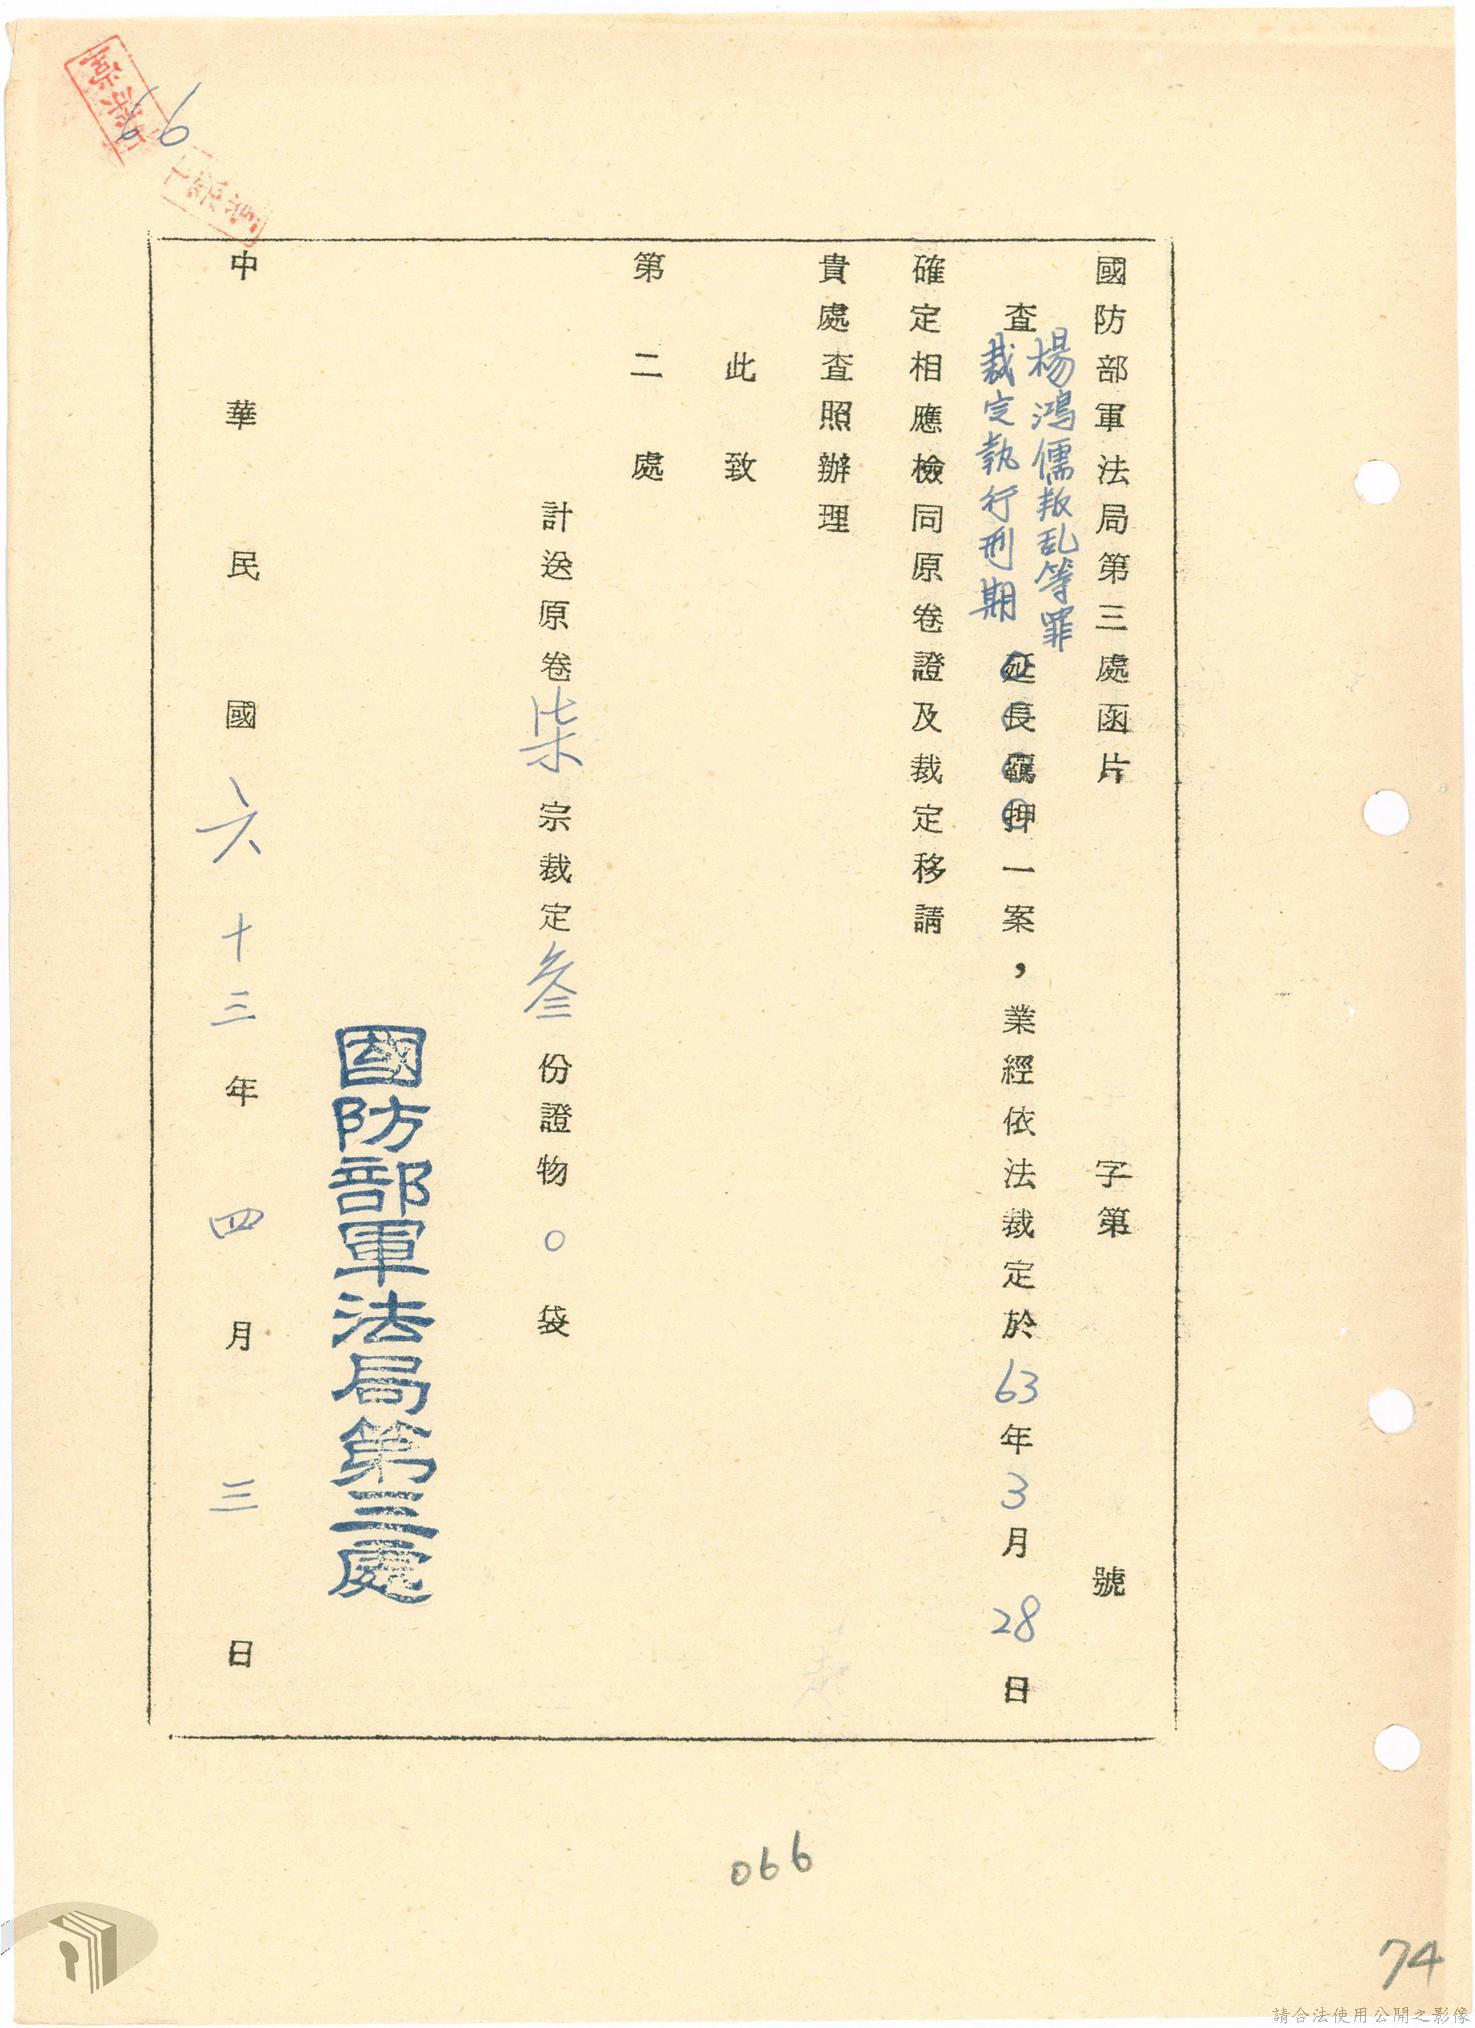 國防部軍法局第三處函片　字第　號
查楊鴻儒叛乱等罪裁定執行刑期延長羈押一案，業經依法裁定於63年3月28日
確定相應檢同原卷證及裁定移請
貴處查照辦理
此致
第二處
計送原卷柒宗裁定叁份證物○袋
國防部軍法局第三處
中華民國六十三年四月三日
66
066
74
請合法使用公開之影像